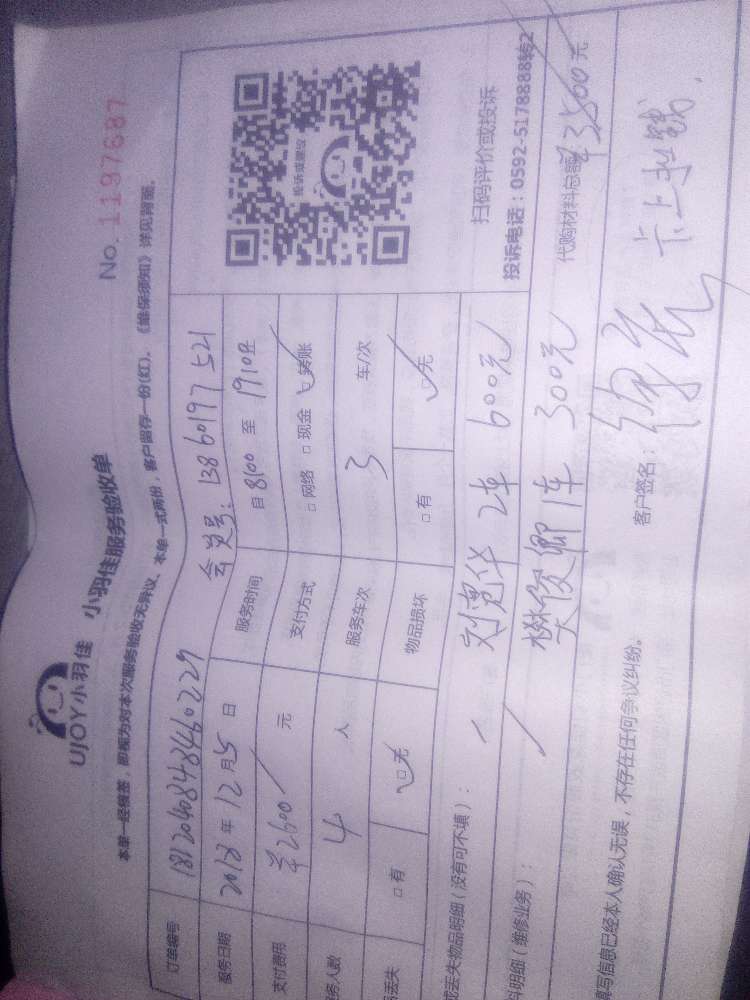 No. 1197687
UJOY小羽佳 小羽佳服务验收单
本单一经核签，即视为对本次服务验收无异议。本单一式两份，客户留存一份(红)。《维保须知》详见背面。
订单编号 1812040848460229 会员号：13860197521
服务日期 2018年12月5日 服务时间 自8:00至19:10
支付费用 ¥2600 元 支付方式 □网络 □现金 □转账
务人数 4 人 服务车次 3 车/次
丢失 □有 □无 物品损坏 □有 □无
投诉或建议
扫码评价或投诉
投诉电话：0592-5178888转2
或丢失物品明细（没有可不填）：
2车 600元
料明细（维修业务）：
樊俊卿 1车 300元
代购材料总额 ¥3500元
填写信息已经本人确认无误，不存在任何争议纠纷。
客户签名：
卡上扣钱.